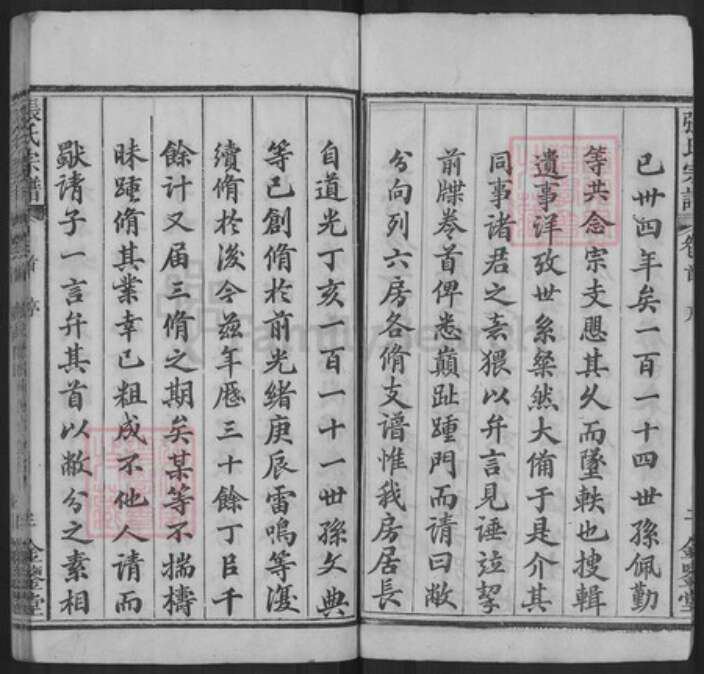 張氏宗譜 卷首 序 二 金鑒堂
已卅四年矣一百一十四世孫佩勤
等共念宗支愳其久而墜軼也搜輯
遺事洋攷世系粲然大備于是介其
同事諸君之嘉猥以弁言見諈竝挈
前牒卷首俾悉巔趾踵門而請曰敝
分向列六房各脩支譜惟我房居長
自道光丁亥一百一十一世孫文典
等已創脩於前光緒庚辰雷鳴等復
續脩於後今茲年歷三十餘丁臣千
餘計又届三脩之期矣某等不揣檮
昧踵脩其業幸已粗成不他人請而
歟請子一言弁其首以敝分之素相
張氏宗譜 首 序 金鑒堂